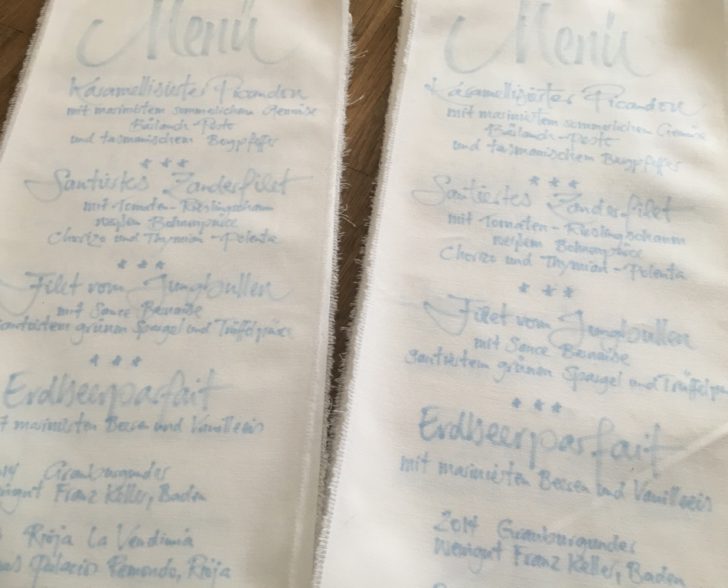 Menü
Karamellisierter Picandou
mit mariniertem sommerlichem Gemüse
Bärlauch-Pesto
und tasmanischem Bergpfeffer
***
Sautiertes Zanderfilet
mit Tomaten-Rieslingschaum
weißem Bohnenpüree
Chorizo und Thymian-Polenta
***
Filet vom Jungbullen
mit Sauce Bearnaise
sautiertem grünen Spargel und Trüffelpüree
***
Erdbeerparfait
marinierten Beeren und Vanilleeis
Grauburgunder
Franz Keller, Baden
Rioja La Vendimia
Palacios Remondo, Rioja
Menü
Karamellisierter Picandou
mit mariniertem sommerlichem Gemüse
Bärlauch-Pesto
und tasmanischem Bergpfeffer
***
Sautiertes Zanderfilet
mit Tomaten-Rieslingschaum
weißem Bohnenpüree
Chorizo und Thymian-Polenta
***
Filet vom Jungbullen
mit Sauce Bearnaise
sautiertem grünen Spargel und
***
Erdbeerparfait
mit marinierten Beeren und Vanilleeis
2014 Grauburgunder
Weingut Franz Keller, Baden